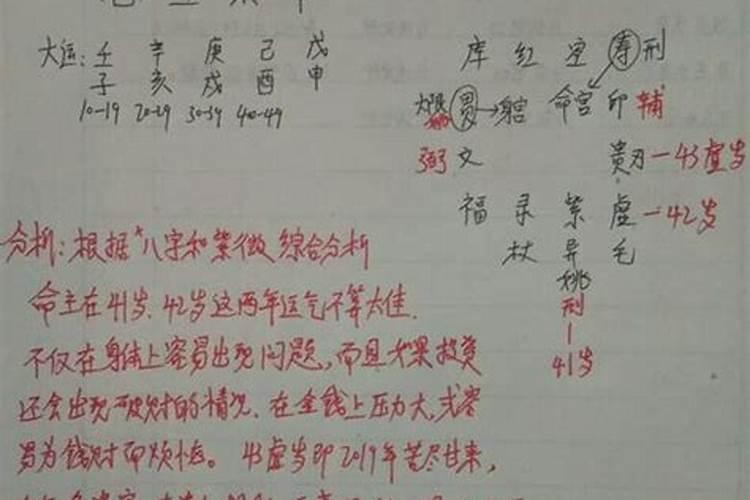 大运: 壬 辛 庚 己 戊
子 亥 戌 酉 申
10-19 20-29 30-39 40-49
库 红 空 寿 刑
大限 胃→身宫 命宫 印 辅
弼 文 贵刃-43虚岁
福 录 紫 虚-42岁
杖 异 毛
姚
刑
41岁
分析: 根据"八字和紫微综合分析
命主在41岁、42岁这两年运气不算太佳.
不仅在身体上容易出现问题,而且如果投资
还会出现破财的情况、在金钱上压力大,或容
易为钱财而烦恼。43虚岁即2019年苦尽甘来,